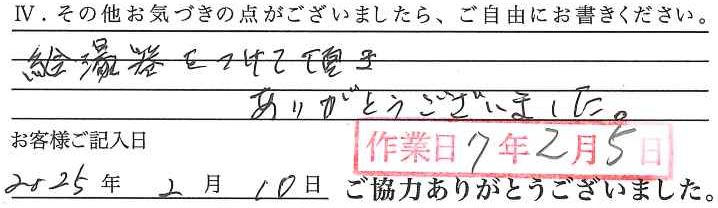 Ⅳ．その他お気づきの点がございましたら、ご自由にお書きください。
給湯器をつけて頂き
ありがとうございました。
お客様ご記入日
作業日7年2月5日
2025年 2月 10日 ご協力ありがとうございました。